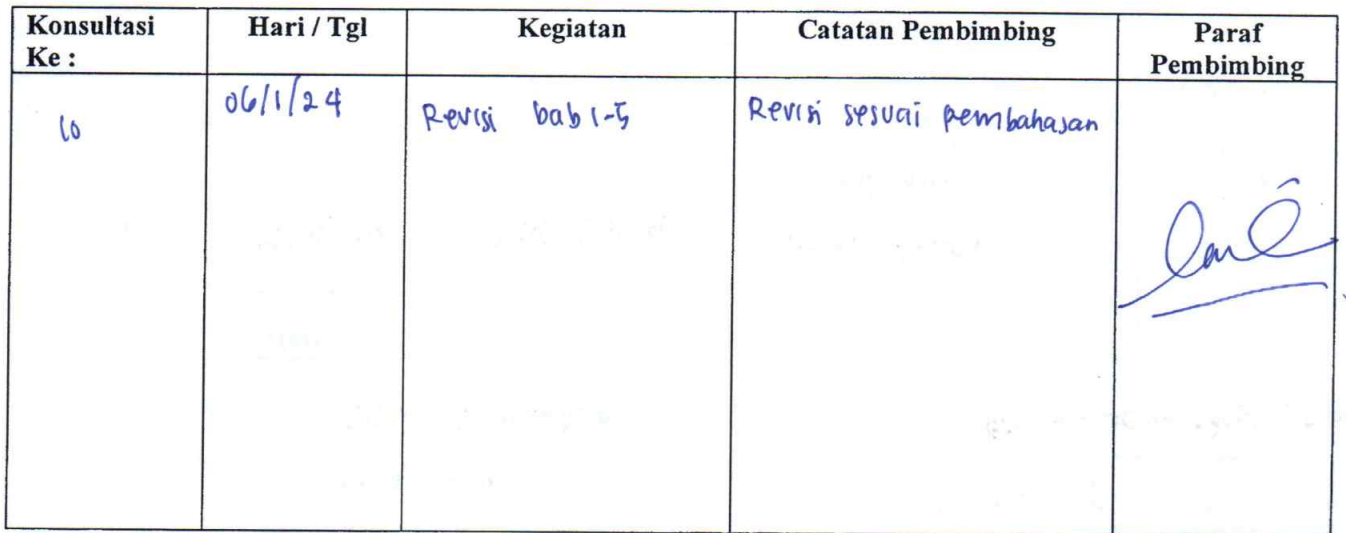 Konsultasi Ke : Hari / Tgl Kegiatan Catatan Pembimbing Paraf Pembimbing
10 06/1/24 Revisi bab 1-5 Revisi sesuai pembahasan